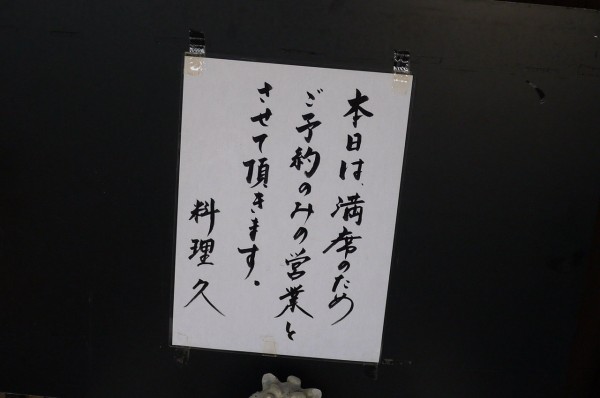 本日は、満席のため
ご予約のみの営業と
させて頂きます。
料理久